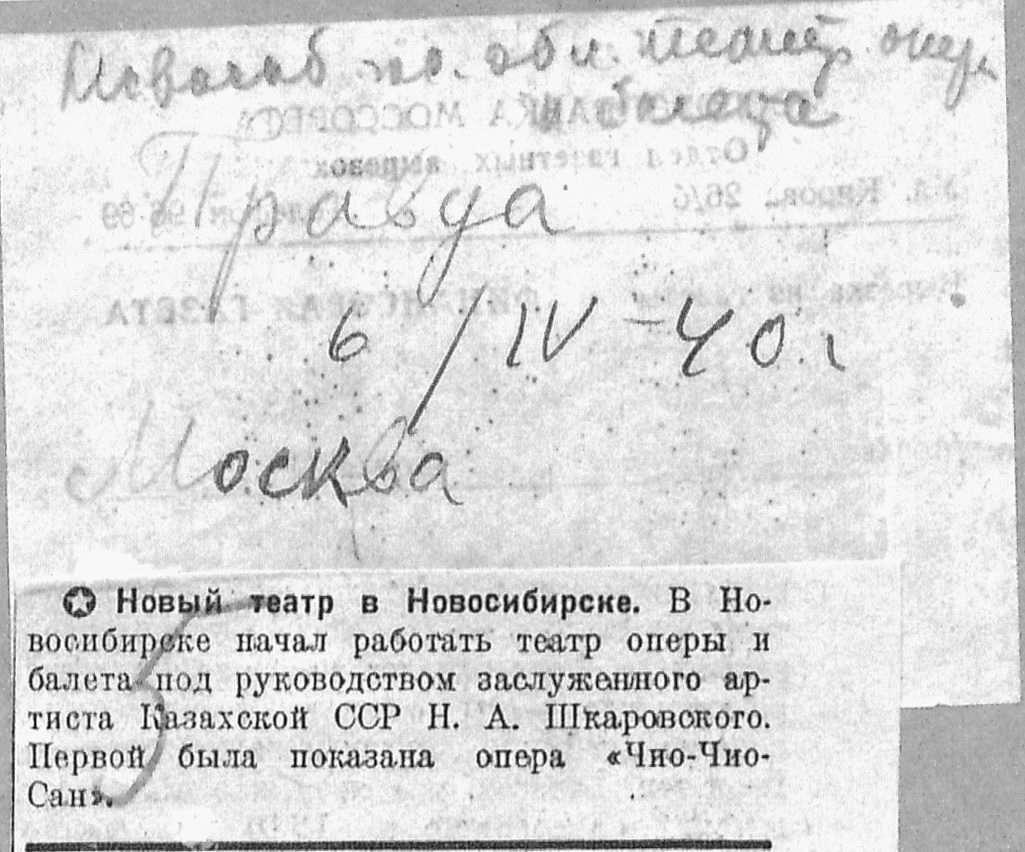 Новосиб. гос. обл. театр опер.
и балета
Правда
6/IV-40 г
Москва
✪ Новый театр в Новосибирске. В Но-
восибирске начал работать театр оперы и
балета под руководством заслуженного ар-
тиста Казахской ССР Н. А. Шкаровского.
Первой была показана опера «Чио-Чио-
Сан».
5